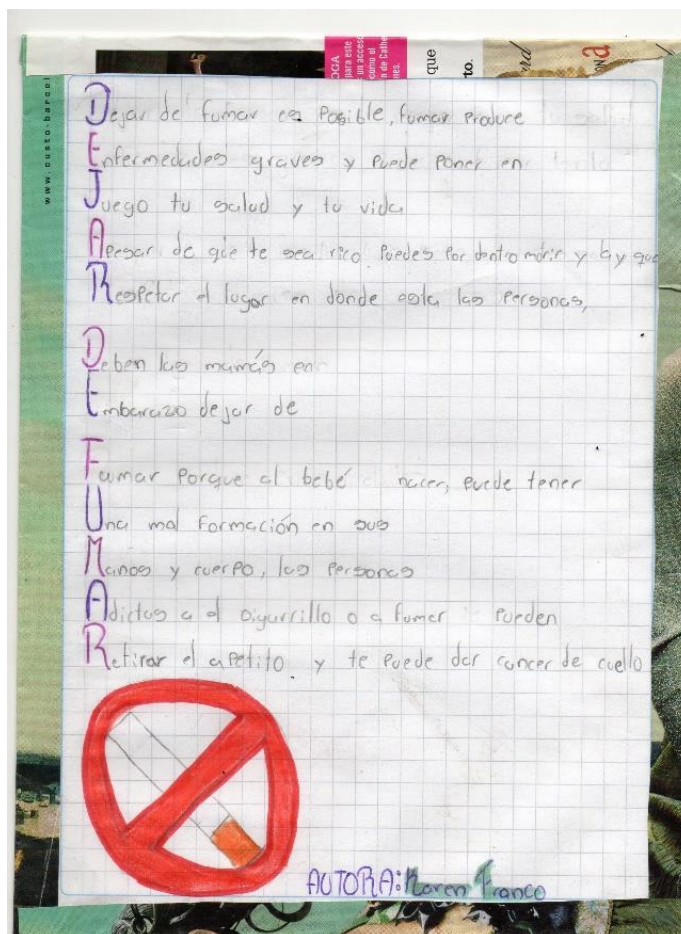 OGA
para este
un acceso
como el
n de Cathe
nes.
que
to.
rd
ona
www.custo-barcel
Dejar de fumar es Posible, fumar Produce
Enfermedades graves y Puede Poner en
Juego tu salud y tu vida
Apesar de que te sea rico Puedes Por dentro morir y ay que
Respetar el lugar en donde esta las Personas,
Deben las mamás en
Embarazo dejar de
Fumar Porque al bebé nacer, Puede tener
Una mal formación en sus
Manos y cuerpo, las Personas
Adictas a el sigarrillo o a fumar Pueden
Retirar el apetito y te Puede dar cancer de cuello
AUTORA: Karen Franco